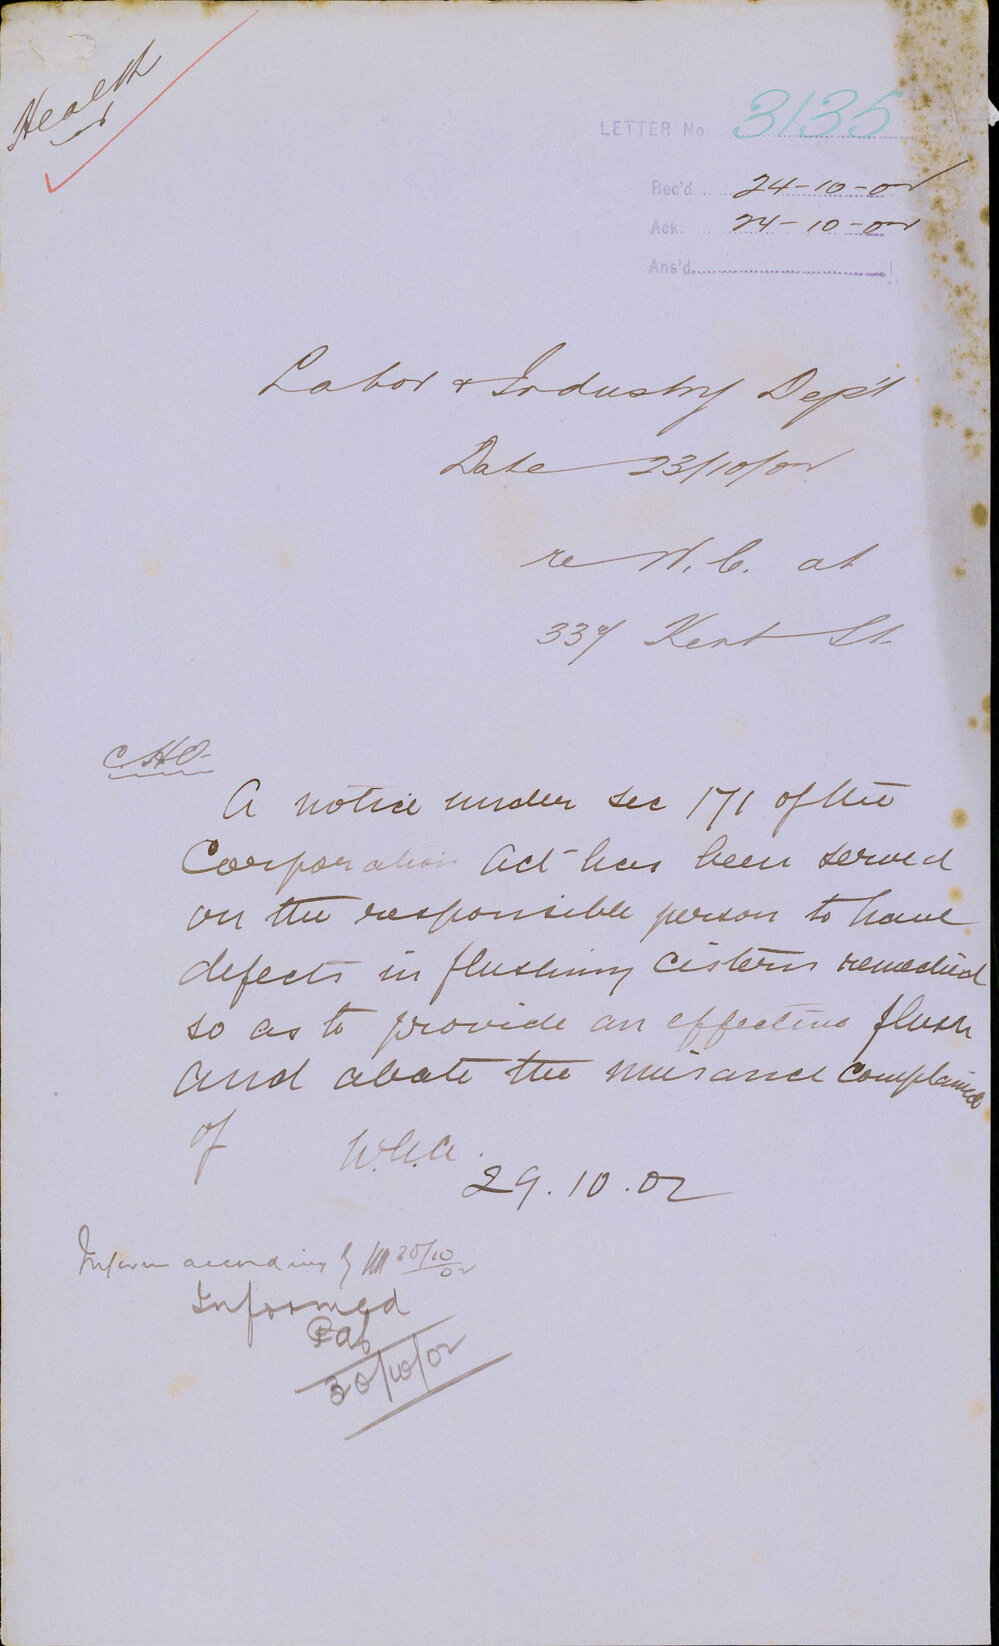 Health
LETTER No 3135
Rec'd 24-10-02
Ack. 24-10-02
Ans'd
Labor & Industry Dep't
Date 23/10/02
re W.C. at
339 Kent St.
C.H.O.
A notice under sec 171 of the
Corporation Act has been served
on the responsible person to have
defects in flushing cistern remedied
so as to provide an effective flush
and abate the nuisance complained
of
29.10.02
Inform accordingly
Informed
30/10/02